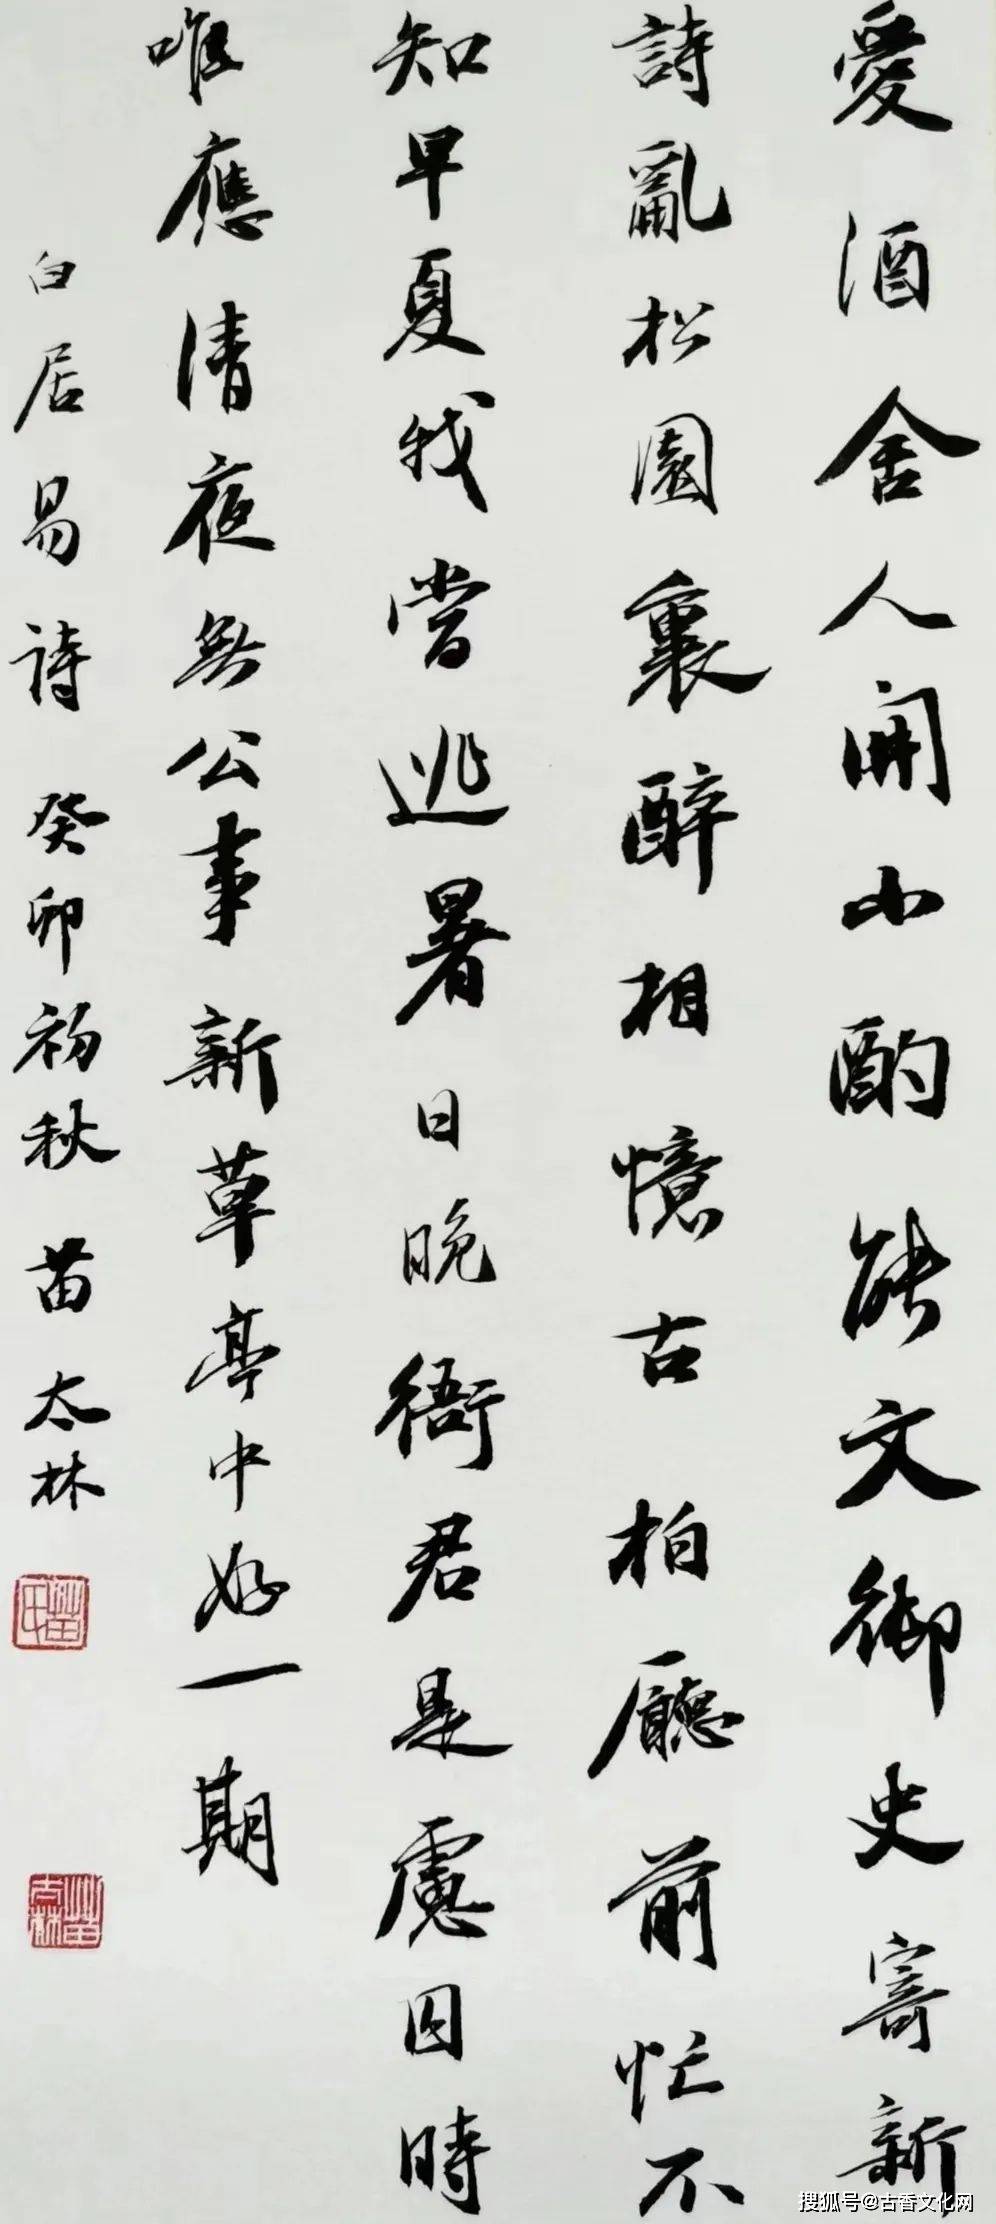 愛酒舍人開小酌能文御史寄新
詩亂松園裏醉相憶古柏廳前忙不
知早夏我嘗逃暑日晚衙君是慮囚時
唯應清夜無公事新草亭中好一期
白居易詩 癸卯初秋 苗太林
苗氏
苗太林
搜狐号@古香文化网